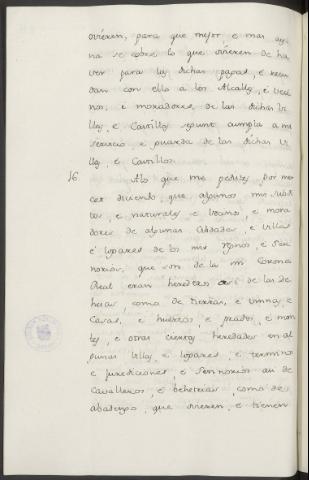 oviéren, para que mejor e mas ay-
na se cobre lo que ovieren de ha-
ver para las dichas pagas, e recu-
dan con ello a los Alcaydes, é veci-
nos, e moradores, de las dichas Vi-
llas, e Castillos segunt cumpla a mi
servicio, e guarda de las dichas Vi-
llas, é Castillos.
16. A lo que me pedistes por mer-
cet diciendo, que algunos mis subdi-
tos, e naturales e vecinos, e mora-
dores de algunas Cibdades, e villas
é logares de los mis regnos, e Sen-
norios, que son de la mi Corona
Real eran herederos de las de
hesas, como de tierras, e vinnas e
Casas, e huertos, e prados, e mon
tes, e otras ciertas heredades en al
gunas villas, e logares, e terminos
e juridiciones, e Sennorios asi de
Cavalleros, e behetrias, como de
abadengo, que ovieren, e tienen